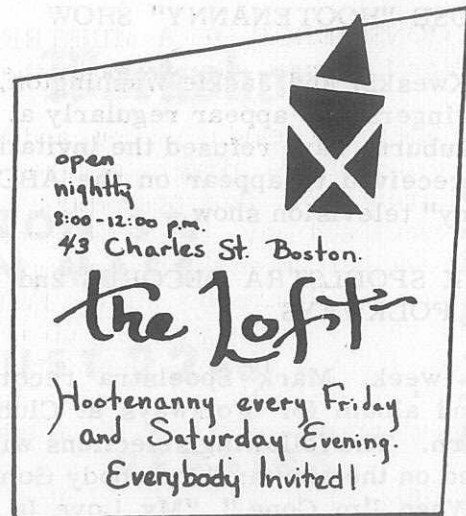 open
nightly
8:00-12:00 p.m.
43 Charles St. Boston.
the Loft
Hootenanny every Friday
and Saturday Evening.
Everybody Invited!